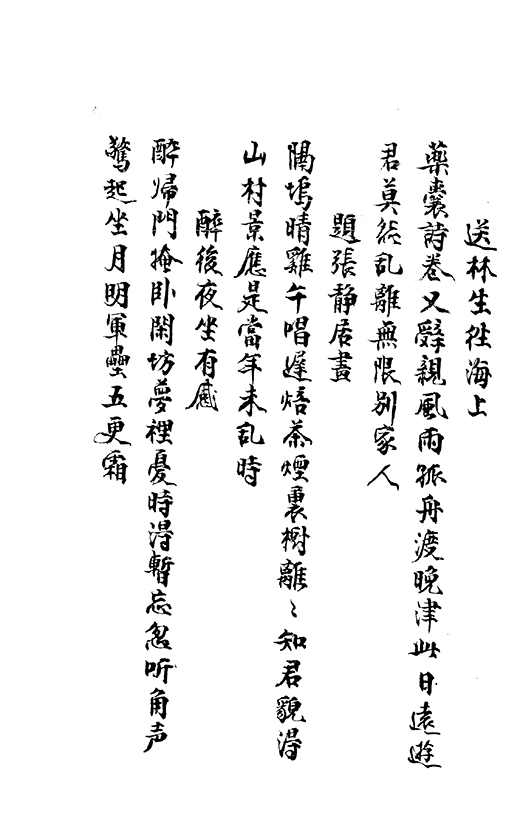 送林生徃海上
藥囊詩卷又辭親風雨孤舟渡晚津此日遠遊
君莫乱離無限別家人
題張静居畫
隔塢晴雞午唱遲焙茶煙裏樹離〻知君貌淂
山村景應是當年未乱時
醉後夜坐有感
醉歸門掩卧閑坊夢裡憂時淂暫忘忽听角声
驚起坐月明軍壘五更霜